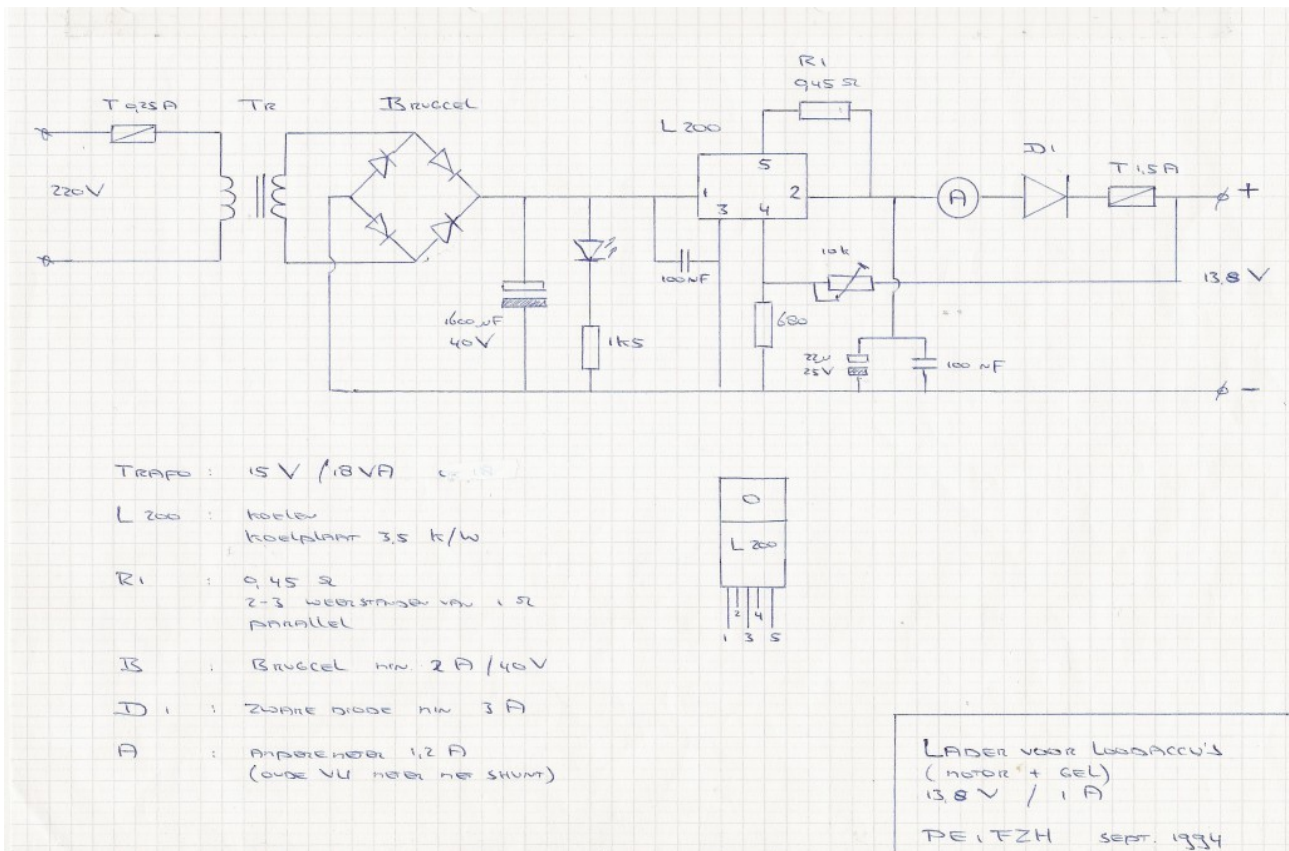 R1
0,45 Ω
T 0,25 A
TR
BRUGCEL
L 200
D1
T 1,5 A
220V
1
5
2
3
4
A
+
10k
100 NF
13,8 V
1600 µF
40V
1k5
680
22µ
25V
100 NF
-
TRAFO : 15 V / 18 VA
L 200 : KOELEN
KOELPLAAT 3,5 K/W
R1 : 0,45 Ω
2-3 WEERSTANDEN VAN 1 Ω
PARALLEL
B : BRUGCEL MIN. 2 A / 40V
D1 : ZWARE DIODE MIN 3 A
A : AMPEREMETER 1,2 A
(OUDE VU METER MET SHUNT)
O
L 200
2 4
1 3 5
LADER VOOR LOODACCU'S
(MOTOR + GEL)
13,8 V / 1 A
PE1FZH SEPT. 1994